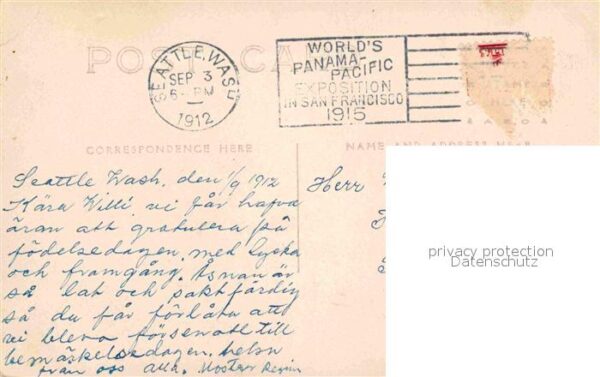 POST CARD
SEATTLE, WASH.
SEP 3
6-PM
1912
WORLD'S
PANAMA-
PACIFIC
EXPOSITION
IN SAN FRANCISCO
1915
CORRESPONDENCE HERE
NAME AND ADDRESS HERE
Seattle Wash. den 1/9 1912
Kära Willi, vi får hafva
äran att gratulera på
födelsedagen, med Lycka
och framgång. Åsnan är
så lat och saktfärdig
så du får förlåta att
vi bleva försenatt till
bemäskelsedagen. helsn
från oss alla. Moster
Herr
privacy protection
Datenschutz